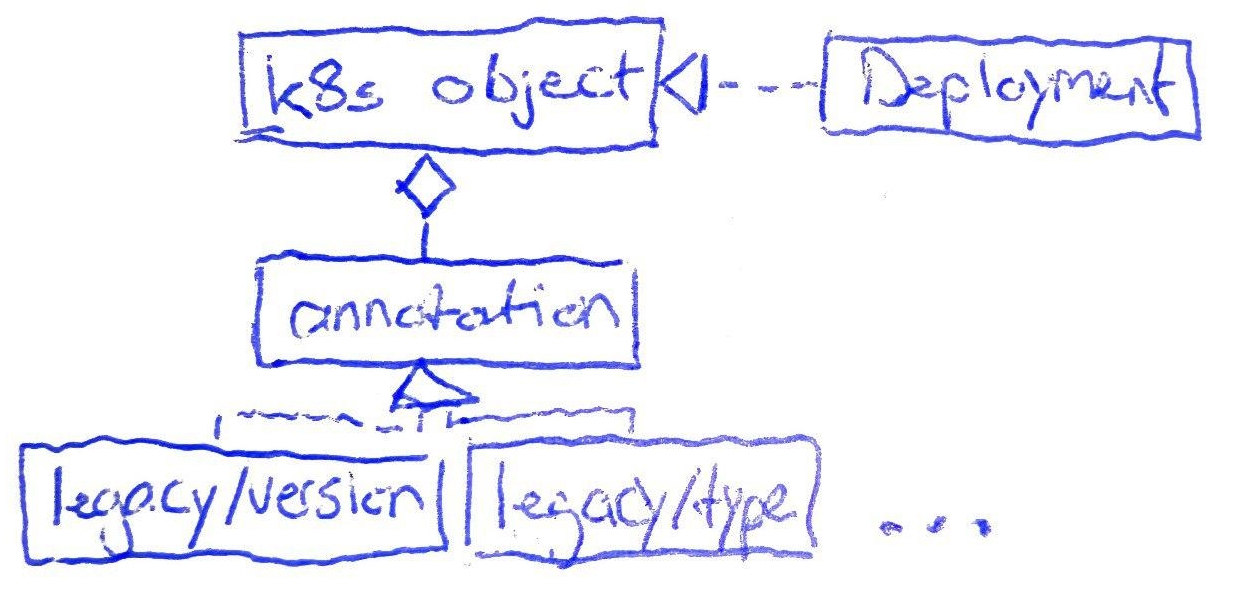 k8s object
Deployment
annotation
legacy/version
legacy/type
...